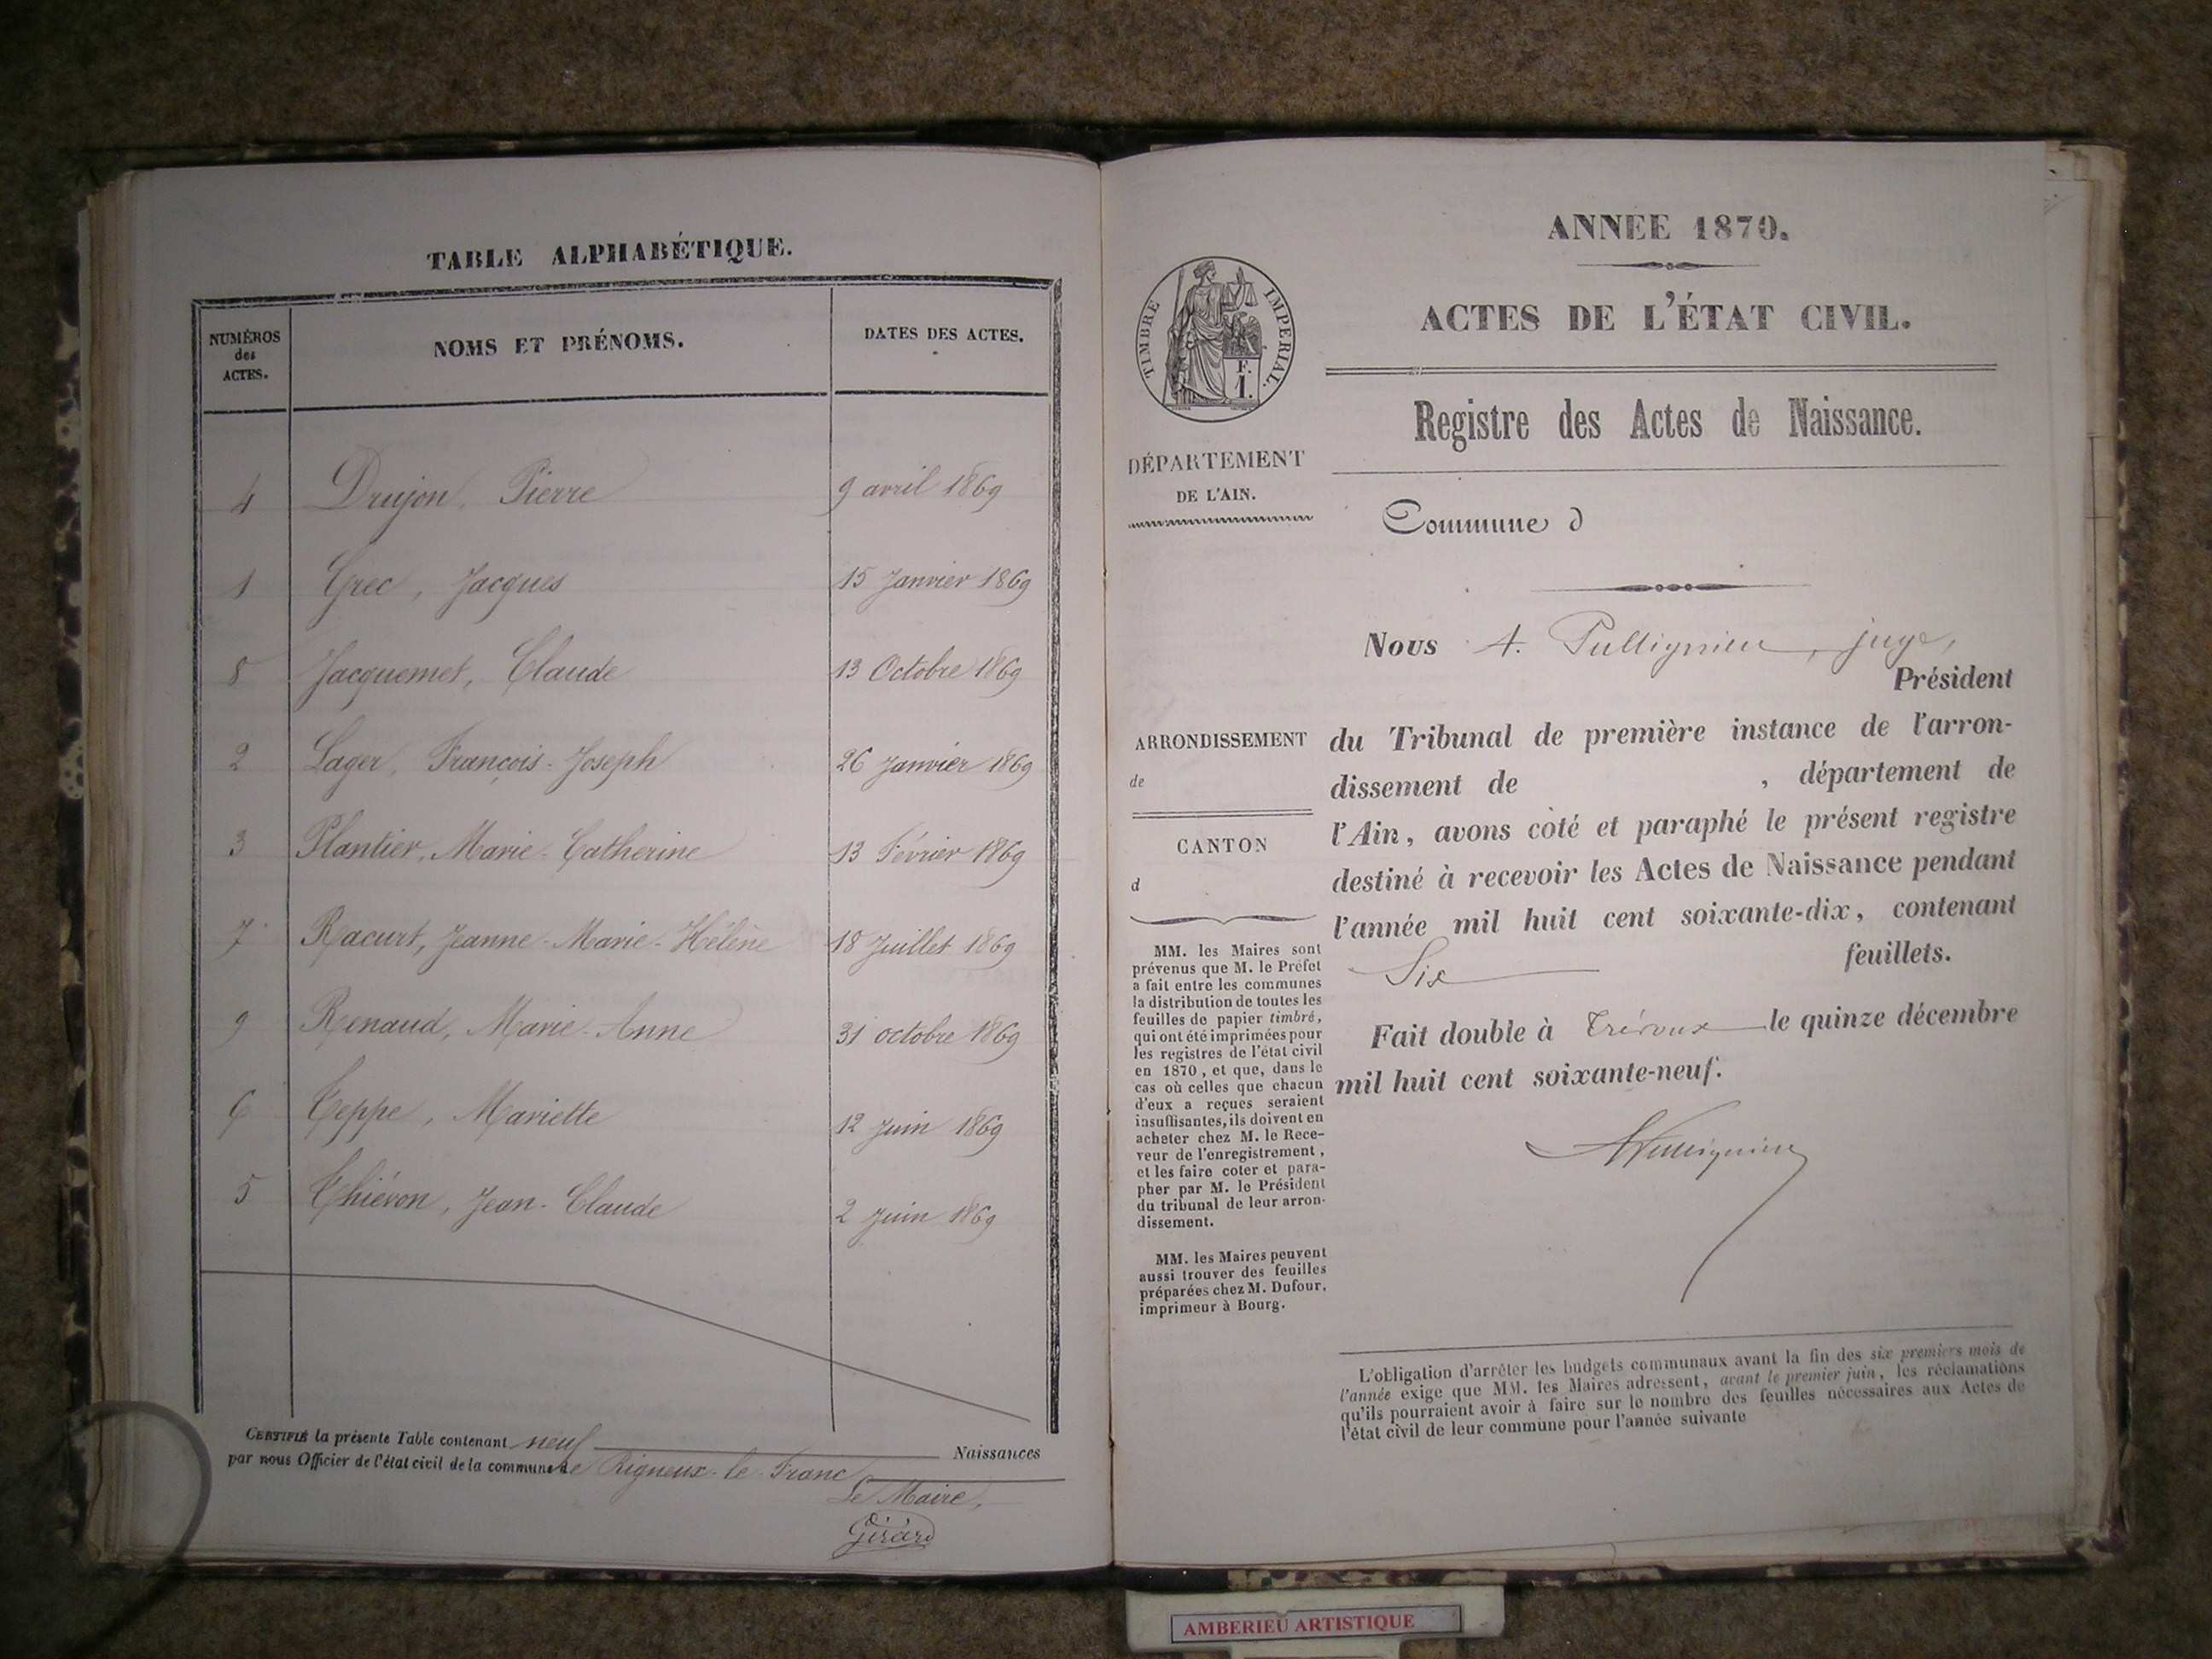 TABLE ALPHABÉTIQUE.
NUMÉROS des ACTES.
NOMS ET PRÉNOMS.
DATES DES ACTES.
4 Drujon, Pierre 9 avril 1869
1 Grec, Jacques 15 Janvier 1869
8 Jacquemet, Claude 13 Octobre 1869
2 Lager, François-Joseph 26 Janvier 1869
3 Plantier, Marie-Catherine 13 Février 1869
7 Racurt, Jeanne-Marie-Hélène 18 Juillet 1869
9 Renaud, Marie-Anne 31 octobre 1869
6 Teppe, Mariette 12 Juin 1869
5 Thiévon, Jean-Claude 2 Juin 1869
CERTIFIÉ la présente Table contenant neuf Naissances
par nous Officier de l'état civil de la commune de Rigneux-le-Franc
Le Maire,
Girard
ANNÉE 1870.
TIMBRE IMPERIAL.
F.
1.
ACTES DE L'ÉTAT CIVIL.
Registre des Actes de Naissance.
DÉPARTEMENT
DE L'AIN.
Commune d
Nous A. Pullignieu, juge,
Président
ARRONDISSEMENT
de
CANTON
d
du Tribunal de première instance de l'arron-
dissement de , département de
l'Ain, avons coté et paraphé le présent registre
destiné à recevoir les Actes de Naissance pendant
l'année mil huit cent soixante-dix, contenant
Six feuillets.
Fait double à Trévoux le quinze décembre
mil huit cent soixante-neuf.
MM. les Maires sont
prévenus que M. le Préfet
a fait entre les communes
la distribution de toutes les
feuilles de papier timbré,
qui ont été imprimées pour
les registres de l'état civil
en 1870, et que, dans le
cas où celles que chacun
d'eux a reçues seraient
insuffisantes, ils doivent en
acheter chez M. le Rece-
veur de l'enregistrement,
et les faire coter et para-
pher par M. le Président
du tribunal de leur arron-
dissement.
MM. les Maires peuvent
aussi trouver des feuilles
préparées chez M. Dufour,
imprimeur à Bourg.
L'obligation d'arrêter les budgets communaux avant la fin des six premiers mois de
l'année exige que MM. les Maires adressent, avant le premier juin, les réclamations
qu'ils pourraient avoir à faire sur le nombre des feuilles nécessaires aux Actes de
l'état civil de leur commune pour l'année suivante
AMBERIEU ARTISTIQUE